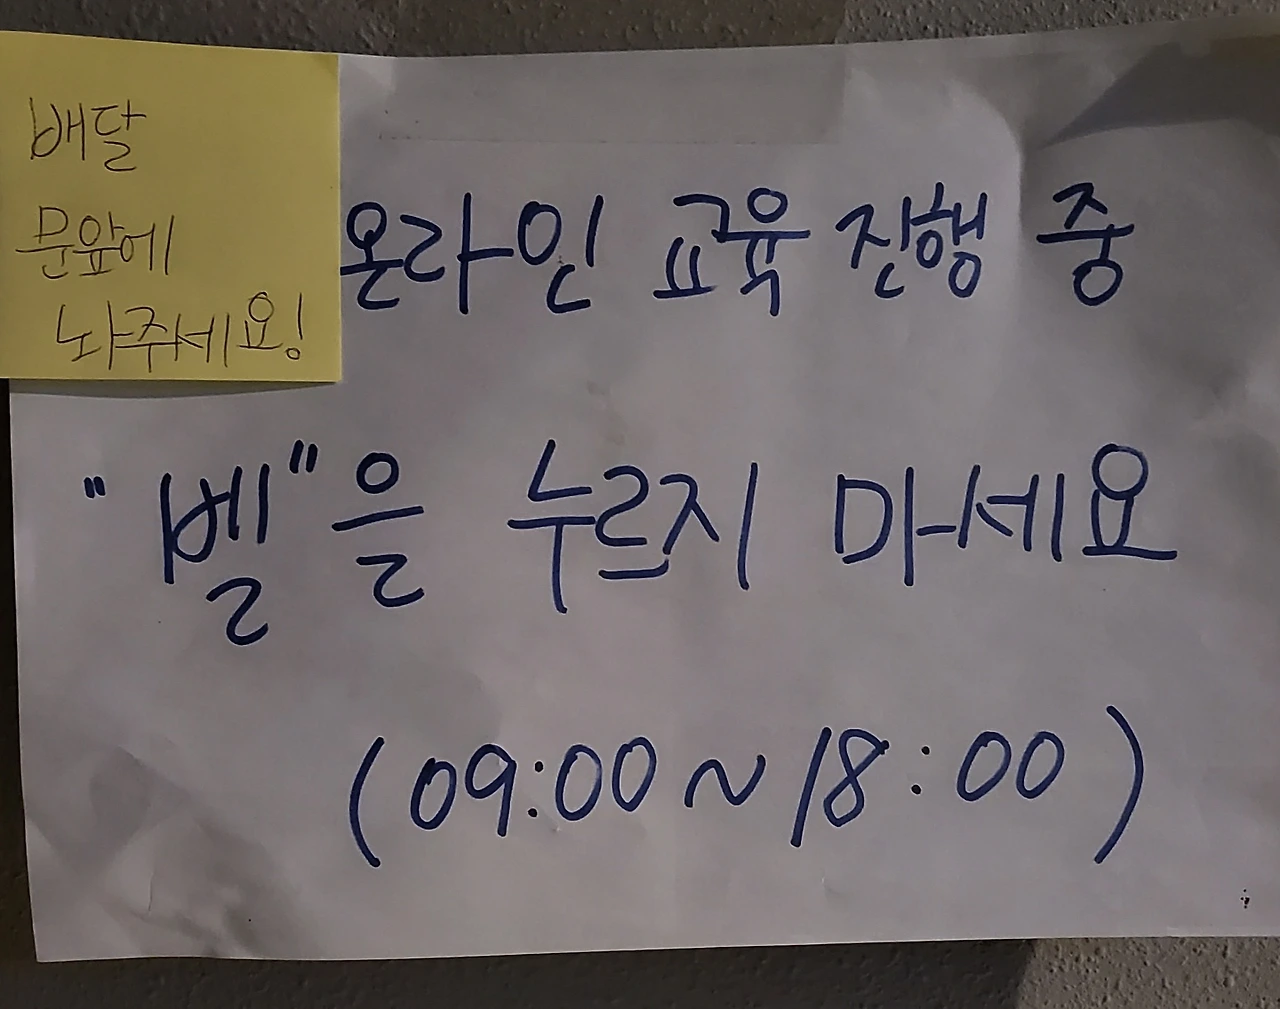 배달
문앞에
놔주세요!
온라인 교육 진행 중
"벨"을 누르지 마세요
(09:00~18:00)